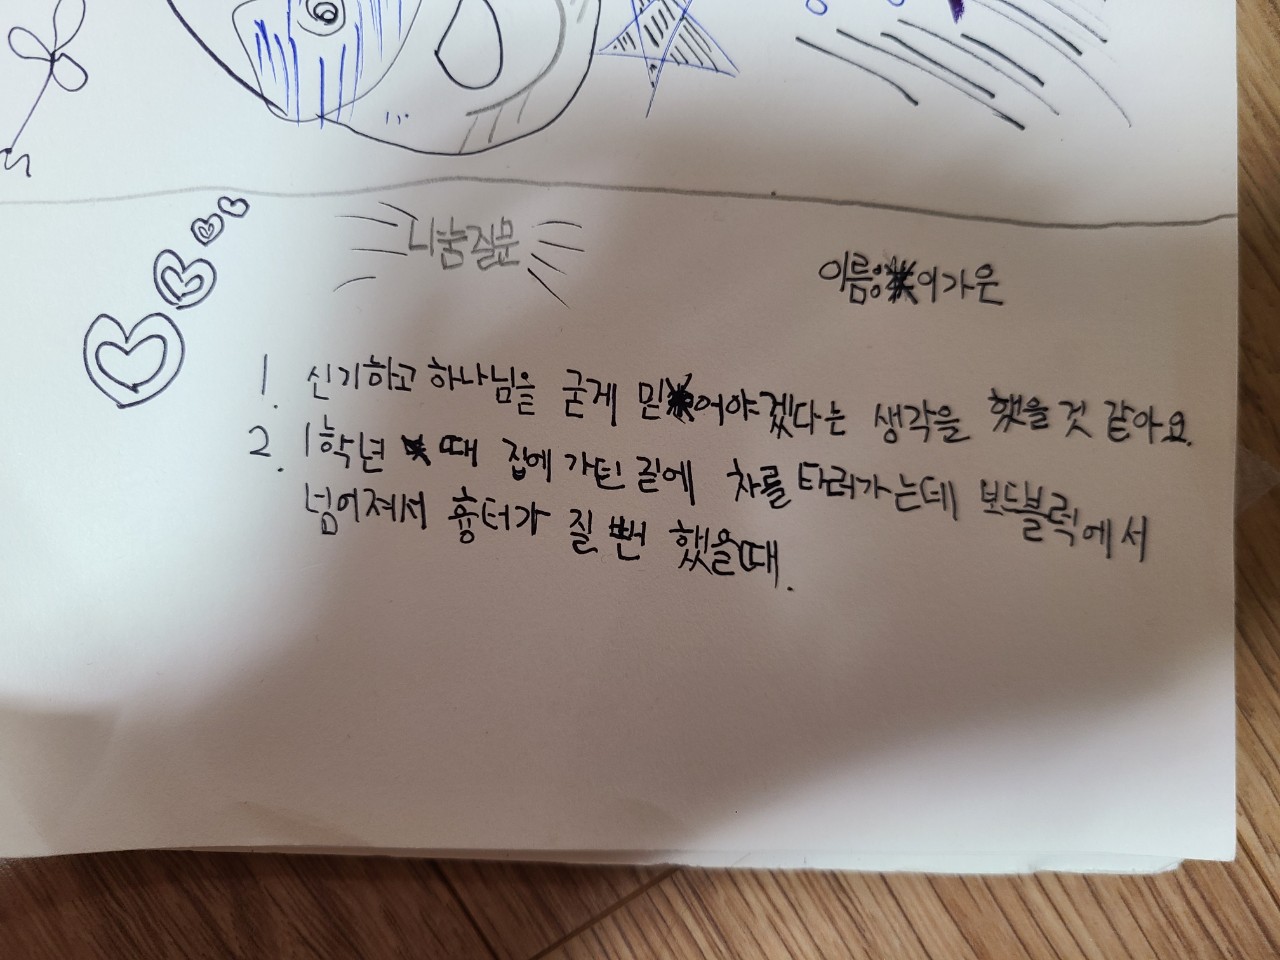 나눔질문
이름: 이가은
1. 신기하고 하나님을 굳게 믿어야겠다는 생각을 했을 것 같아요.
2. 1학년 때 집에 가던 길에 차를 타러가는데 보드블럭에서
넘어져서 흉터가 질 뻔 했을때.